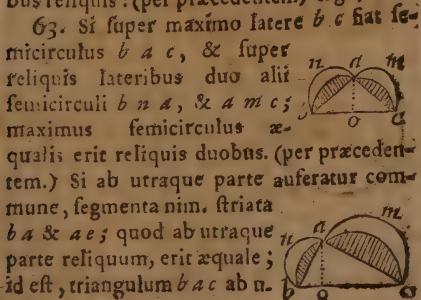 bus reliquis : (per præcedentem)
63. Si ſuper maximo latere b c fiat ſe-
micirculus b a c, & ſuper
reliquis lateribus duo alii
ſemicirculi b n a, & a m c;
maximus ſemicirculus æ-
qualis erit reliquis duobus. (per præceden-
tem.) Si ab utraque parte auferatur com-
mune, ſegmenta nim. ſtriata
b a & a e; quod ab utraque
parte reliquum, erit æquale;
id eſt, triangulum b a c ab n.
n a m
b o c
n a m
b o c